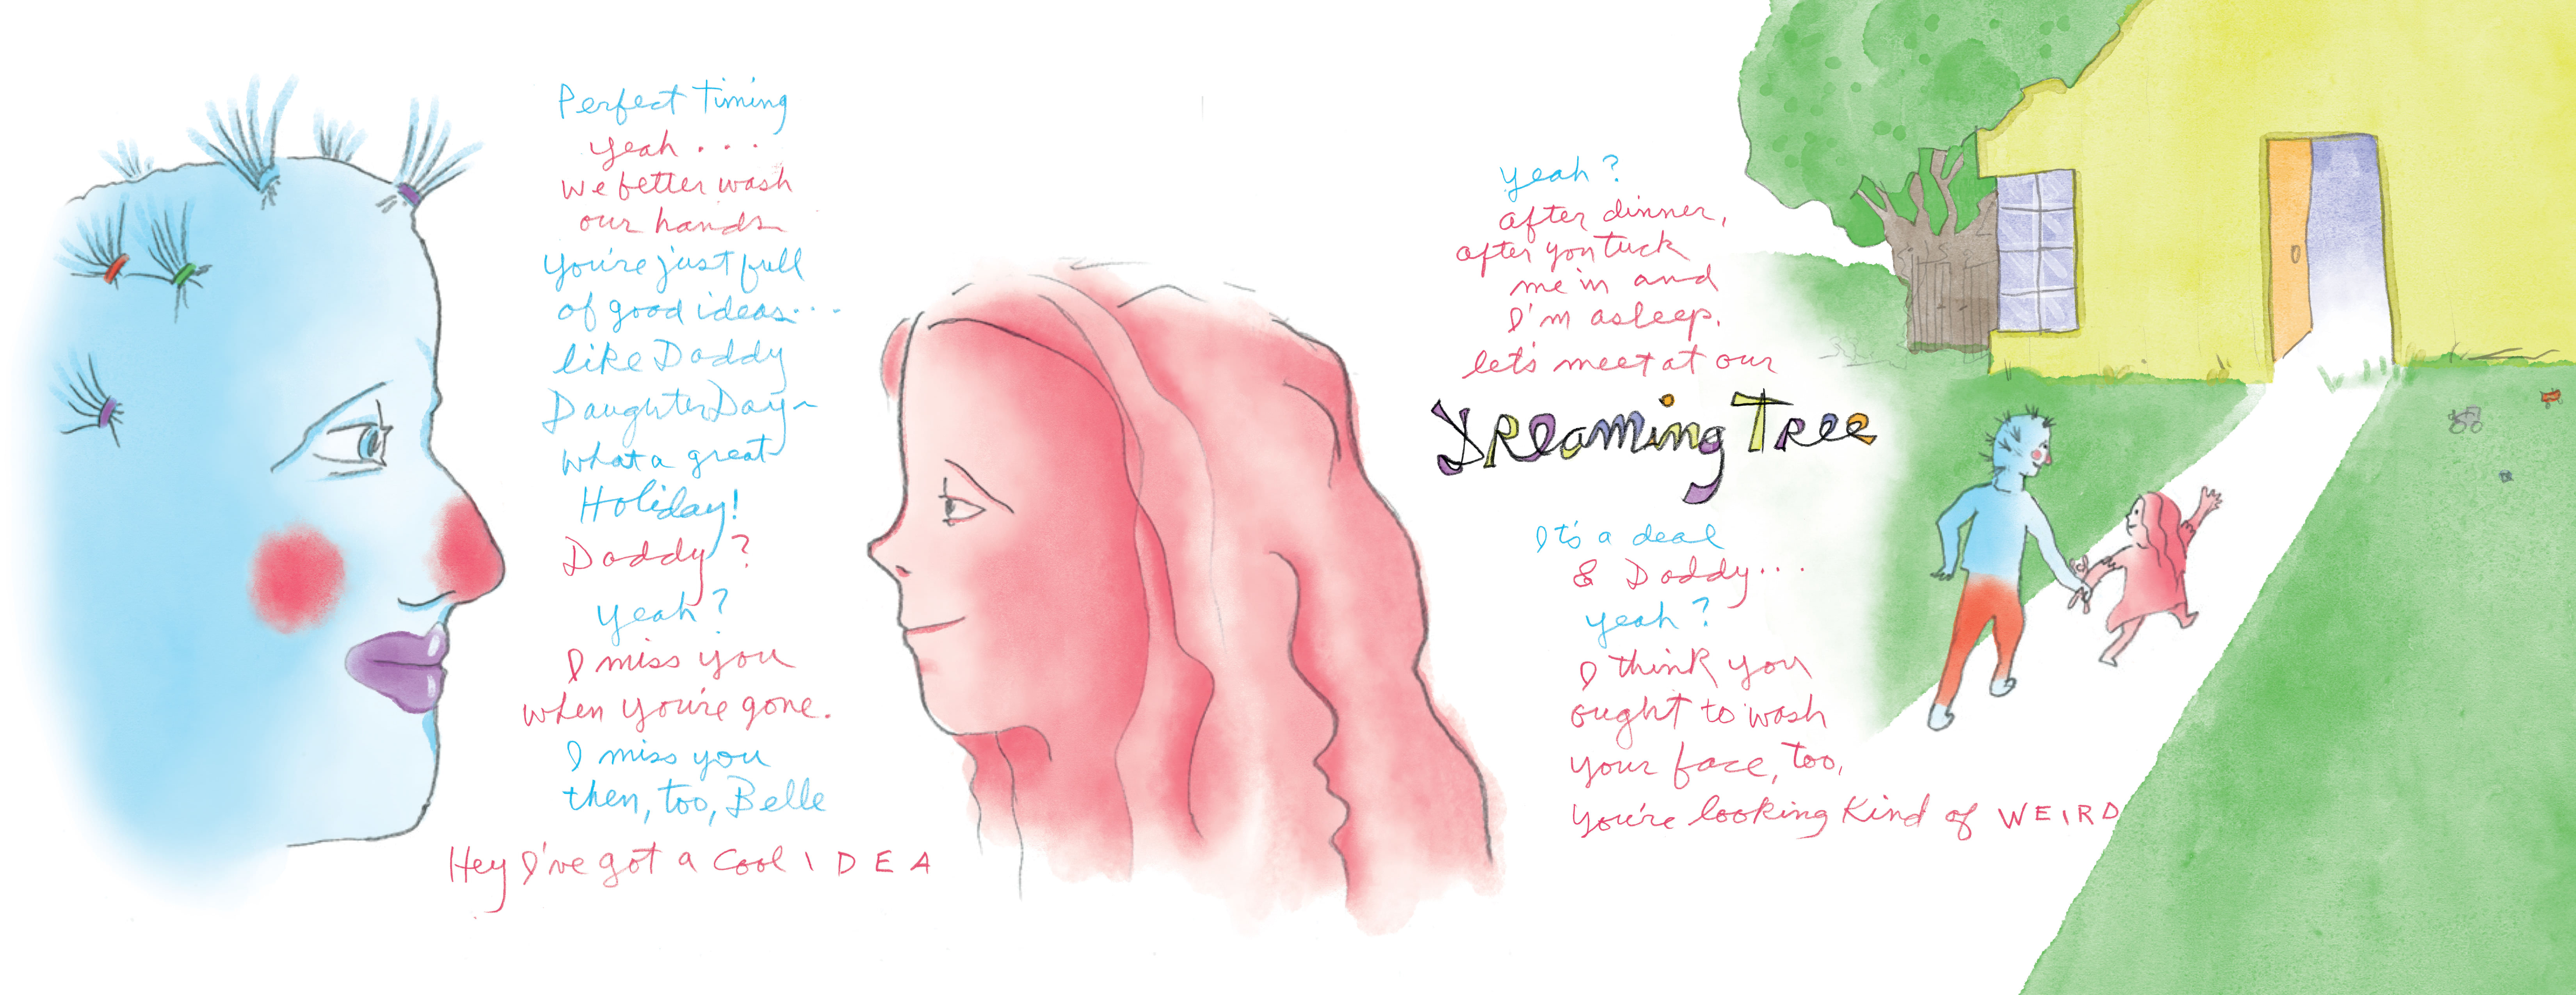 Perfect Timing
yeah . . .
we better wash
our hands
you're just full
of good ideas. . .
like Daddy
Daughter Day~
What a great
Holiday!
Daddy?
yeah?
I miss you
when you're gone.
I miss you
then, too, Belle
Hey I've got a cool IDEA
yeah?
after dinner,
after you tuck
me in and
I'm asleep.
let's meet at our
DReaming TRee
It's a deal
& Daddy . . .
yeah?
I think you
ought to wash
your face, too,
you're looking kind of WEIRD